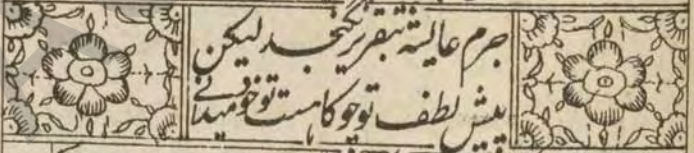 جرم عایشه بتقریر نگنجد لیکن
پیش لطف تو چو کاهست تو خود میدانی